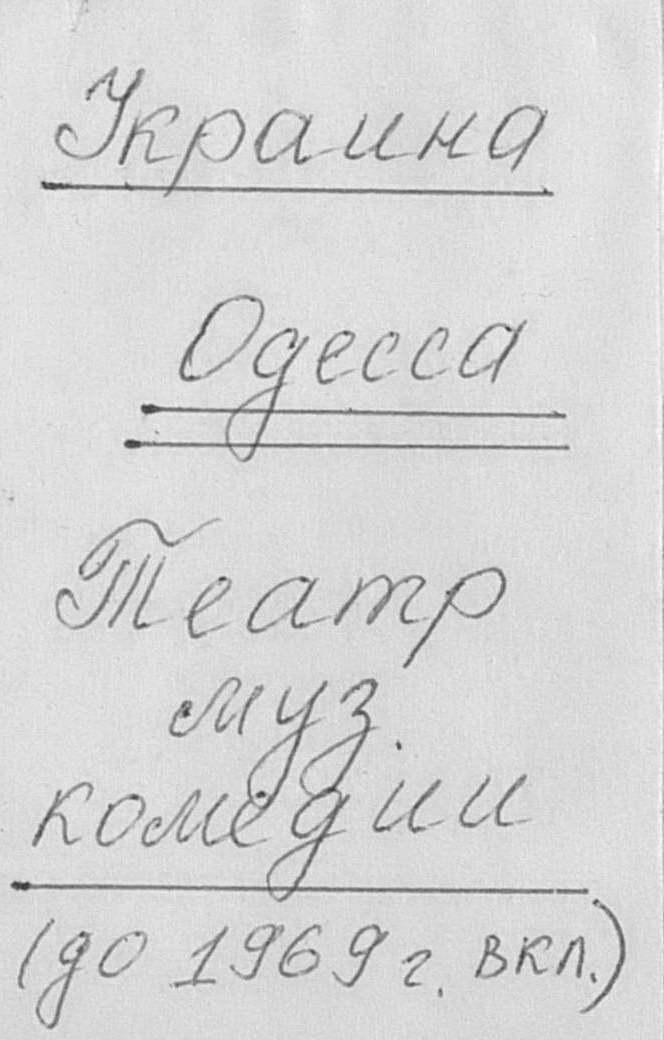 Украина
Одесса
Театр
муз.
комедии
(до 1969 г. вкл.)